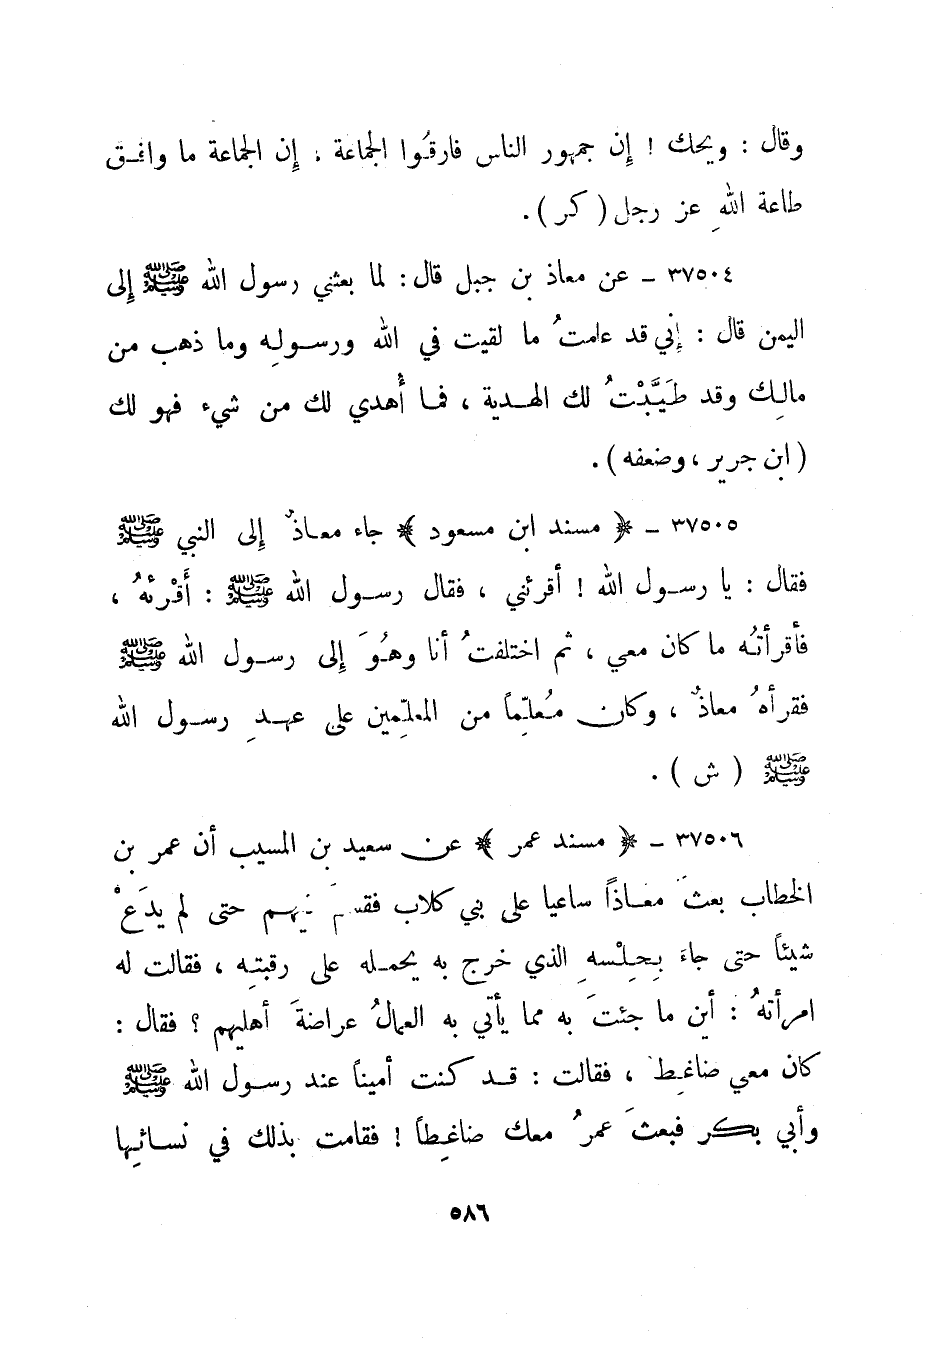 وقال : ويحك ! إن جمهور الناس فارقُوا الجماعة ، إن الجماعة ما وافـق
طاعة اللهِ عز رجل ( كر ) .
٣٧٥٠٤ ـ عن معاذ بن جبل قال : لما بعثني رسول الله ﷺ إلى
اليمن قال : إني قد علمتُ ما لقيت في الله ورسـولِه وما ذهب من
مالِك وقد طَيَّبْتُ لك الهـدية ، فمـا أُهدي لك من شيء فهو لك
( ابن جرير ، وضعفه ) .
٣٧٥٠٥ ـ ﴿ مسند ابن مسعود ﴾ جاء معـاذٌ إلى النبي ﷺ
فقال : يا رسـول الله ! أقرئني ، فقال رسـول الله ﷺ : أَقْرِئهُ ،
فأقرأتُه ما كان معي ، ثم اختلفتُ أنا وهُوَ إلى رسـول الله ﷺ
فقرأهُ معاذٌ ، وكان مُعلّماً من المعلّمين على عهـدِ رسـول الله
ﷺ ( ش ) .
٣٧٥٠٦ ـ ﴿ مسند عمر ﴾ عن سعيد بن المسيب أن عمر بن
الخطاب بعثَ معـاذاً ساعيا على بني كلاب فقسمَ فيهم حتى لم يدَعْ
شيئاً حتى جاءَ بِحِلْسهِ الذي خرج به يحمـله على رقبتِه ، فقالت له
امرأتهُ : أين ما جئتَ به مما يأتي به العمالُ عراضةَ أهليهم ؟ فقال :
كان معي ضاغِطٌ ، فقالت : قـد كنت أميناً عند رسـول الله ﷺ
وأبي بكر فبعثَ عمرُ معك ضاغِطاً ! فقامت بذلك في نسـائِها
٥٨٦